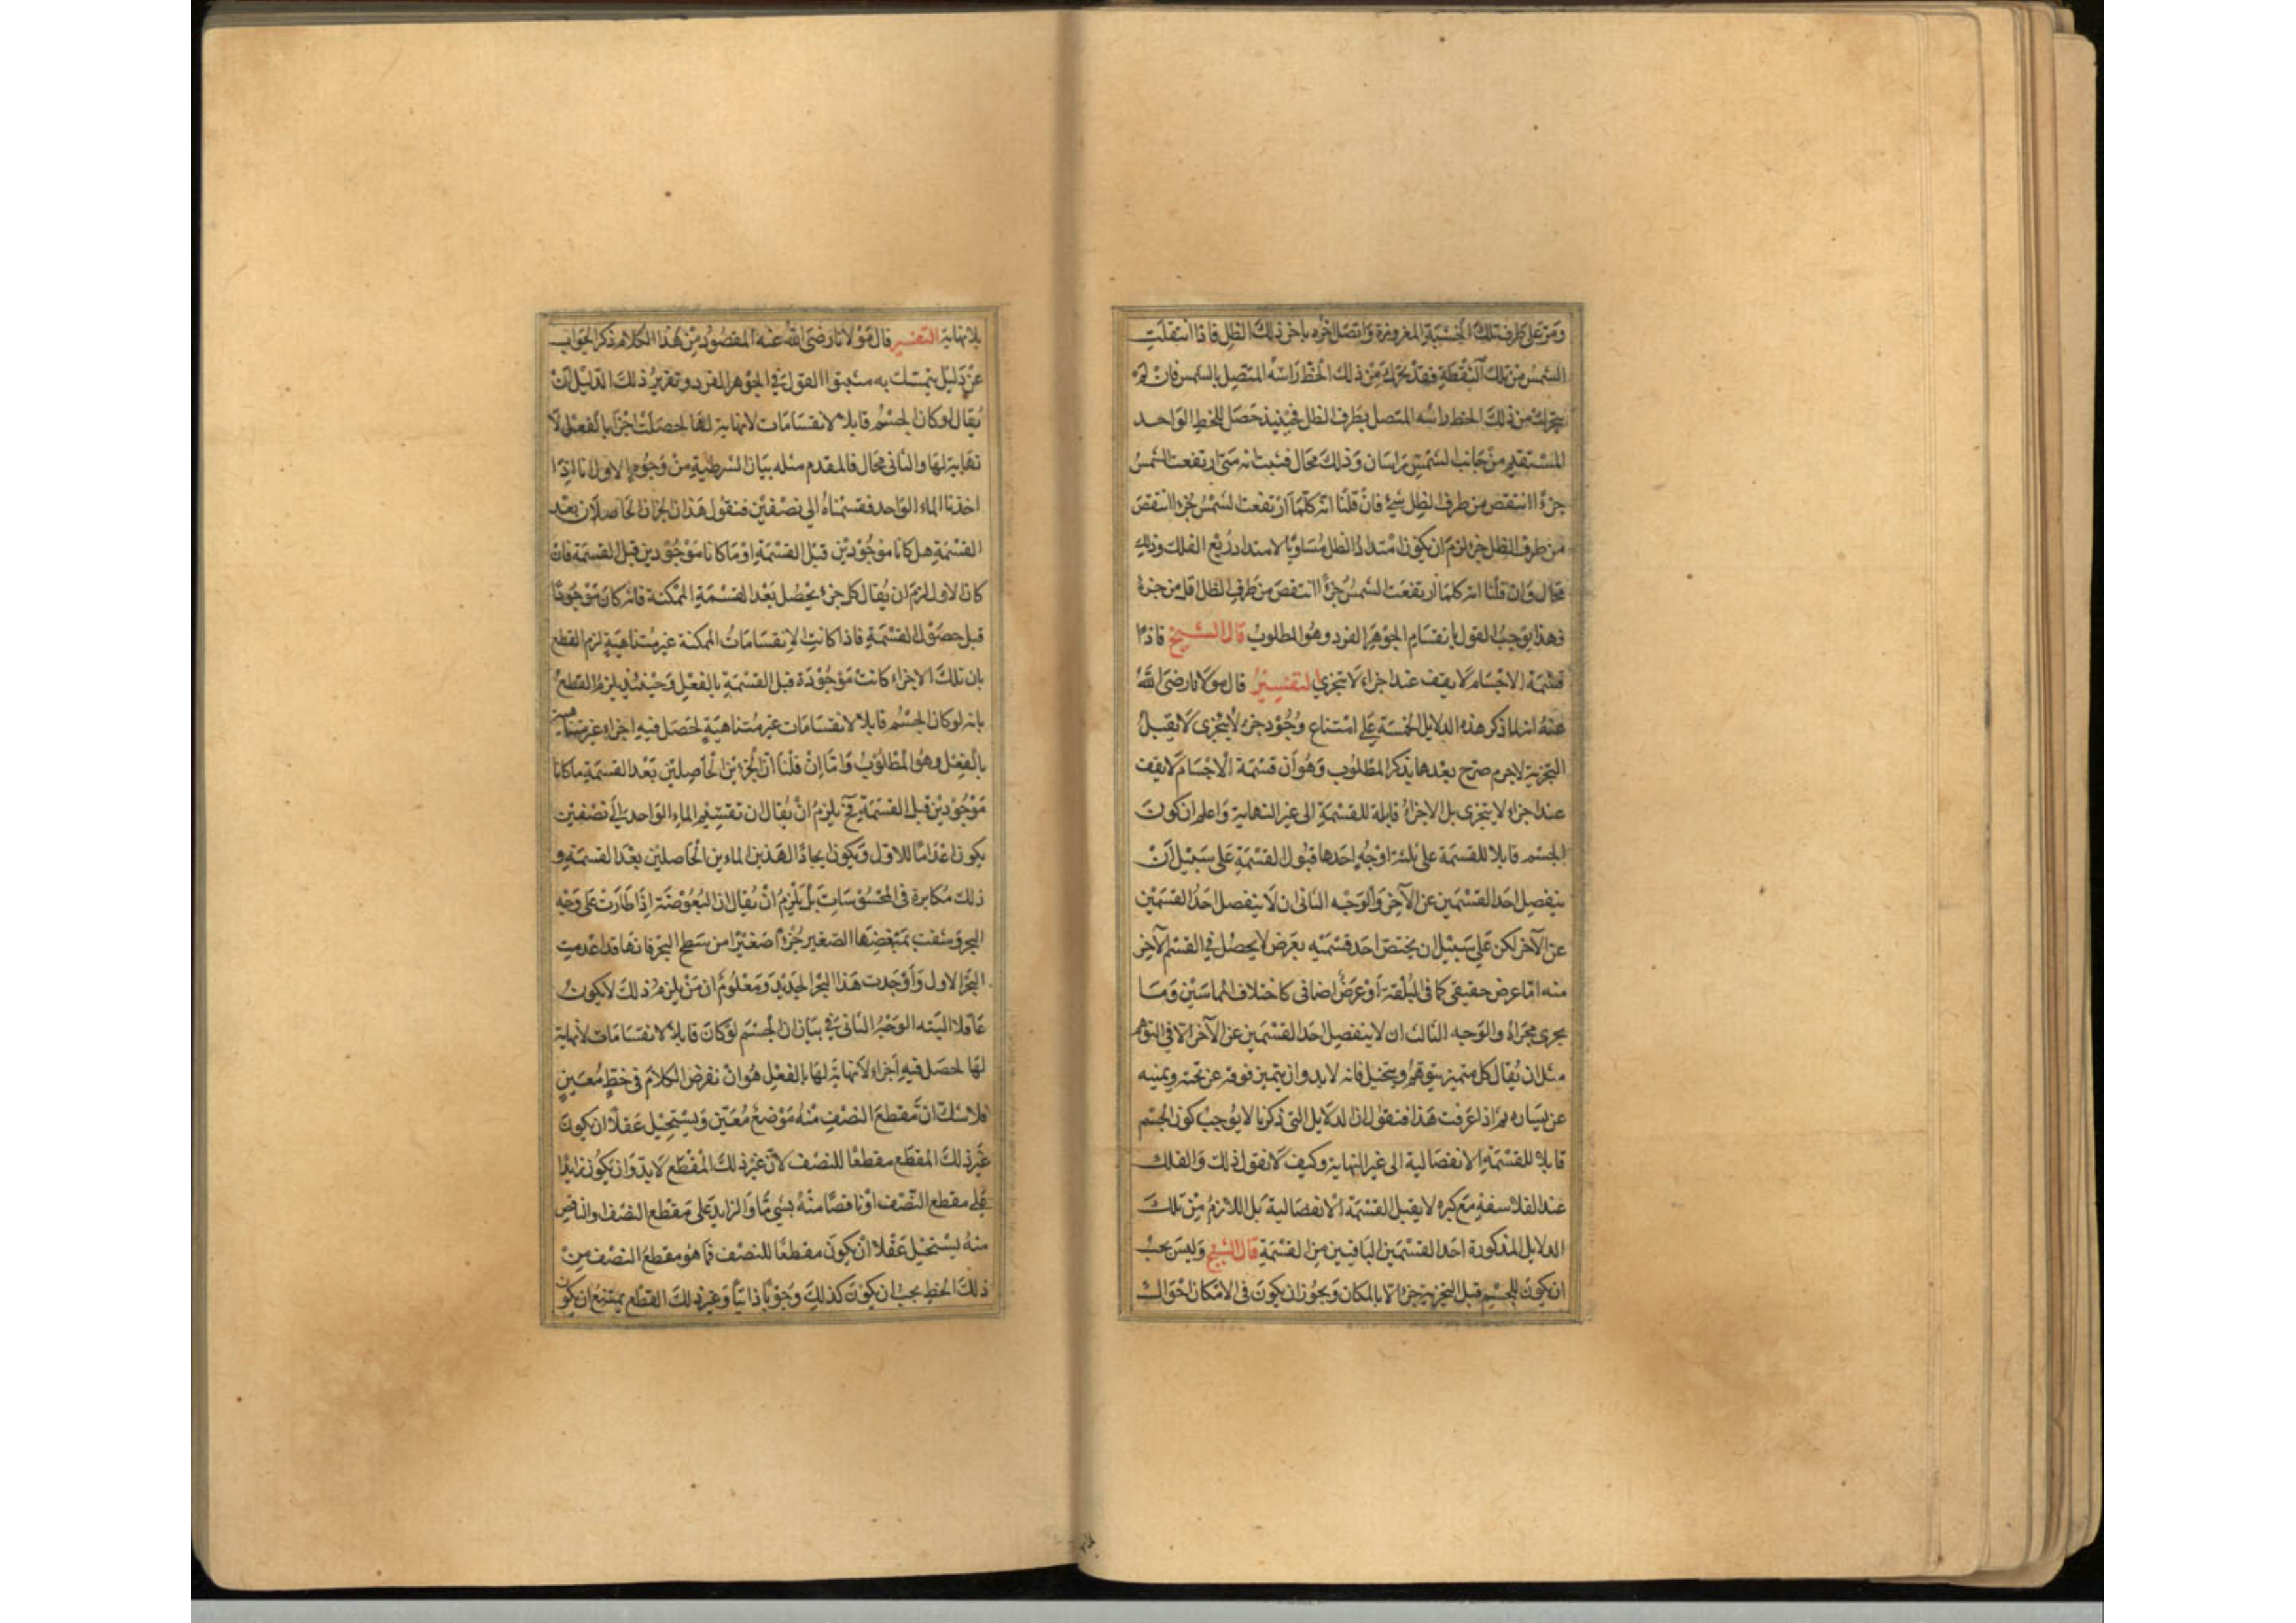 ومر على طرف تلك الخشبة المغروزة واتصل اخره باخر ذلك الظل فاذا انتقلت
الشمس من تلك النقطة فقد تحرك من ذلك الخط راسه المتصل بالشمس فان لم
يتحرك من ذلك الخط راسه المتصل بطرف الظل فحينيذ حصل للخط الواحد
المستقيم من جانب الشمس راسان وذلك محال فثبت انه متى ارتفعت الشمس
جزءًا انتقص من طرف الظل شيء فان قلنا انه كلما ارتفعت الشمس جزءا انتقص
من طرف الظل جزء لزم ان يكون امتداد الظل مساويا لامتداد ربع الفلك وذلك
محال وان قلنا انه كلما ارتفعت الشمس جزءًا انتقص من طرف الظل اقل من جزء
فهذا يوجب القول بانقسام الجوهر الفرد وهو المطلوب قال الشيخ فاذا
قسمة الاجسام لا يقف عند اجزاء لا تتجزي التفسير قال مولانا رضى الله
عنه انه لما ذكر هذه الدلايل الخمسة على امتناع وجود جزء لا يتجزى لا يقبل
التجزية لاجرم صرح بعدها بذكر المطلوب وهو أن قسمة الاجسام لا يقف
عند اجزاء لا يتجزى بل الاجزاء قابلة للقسمة الى غير النهاية واعلم ان كون
الجسم قابلا للقسمة على ثلثة اوجه احدها قبول القسمة على سبيل أن
ينفصل احد القسمين عن الآخر والوجه الثانى ان لا ينفصل احد القسمين
عن الآخر لكن على سبيل ان يختص احد قسميه بعرض لا يحصل في القسم الآخر
منه اما عرض حقيقى كما فى البلقة أو عرض اضافى كاختلاف المماسين وما
يجرى مجراه والوجه الثالث ان لا ينفصل احد القسمين عن الآخر الا في التوهم
مثل ان يقال كل متميز يتوهم ويتخيل فانه لا بد وان يتميز فوقه عن تحته ويمينه
عن يساره ثم اذا عرفت هذا فنقول ان الدلايل التى ذكرنا لا يوجب كون الجسم
قابلا للقسمة الانفصالية الى غير النهاية وكيف لا نقول ذلك والفلك
عند الفلاسفة مع كبره لا يقبل القسمة الانفصالية بل اللازم من تلك
الدلايل المذكورة احد القسمين الباقيين من القسمة قال الشيخ وليس يجب
ان يكون للجسم قبل التجزية جزء الا بالامكان ويجوز ان يكون فى الامكان احوال
بلا نهاية التفسير قال مولانا رضى الله عنه المقصود من هذا الكلام ذكر الجواب
عن دليل يتمسك به مثبتوا القول في الجوهر الفرد وتقرير ذلك الدليل أن
يقال لو كان الجسم قابلا لانقسامات لا نهاية لها لحصلت اجزاء بالفعل لا
نهاية لها والثانى محال فالمقدم مثله بيان الشرطية من وجوه الاول انا اذا
اخذنا الماء الواحد فقسمناه الى نصفين فنقول هذان الجزان الحاصلان بعد
القسمة هل كانا موجودين قبل القسمة او ما كانا موجودين قبل القسمة فان
كان الاول لزم ان يقال كل جزء يحصل بعد القسمة الممكنة فانه كان موجودا
قبل حصول القسمة فاذا كانت الانقسامات الممكنة غير متناهية لزم القطع
بان تلك الاجزاء كانت موجودة قبل القسمة بالفعل وحينئذ يلزم القطع
بانه لو كان الجسم قابلا لانقسامات غير متناهية لحصل فيه اجزاء غير متناهية
بالفعل وهو المطلوب وأما إن قلنا أن الجزءين الحاصلين بعد القسمة ما كانا
موجودين قبل القسمة فح يلزم أن يقال ان تقسيم الماء الواحد الى نصفين
يكون اعداما للاول ويكون ايجادا لهذين الماءين الحاصلين بعد القسمة و
ذلك مكابرة فى المحسوسات بل يلزم أن يقال ان البعوضة إذا طارت على وجه
البحر وشقت بمبضعها الصغير جزءًا صغيرا من سطح البحر فانها قد اعدمت
البحر الاول وأوجدت هذا البحر الجديد ومعلوم ان من يلزم ذلك لا يكون
عاقلا البته الوجه الثانى في بيان ان الجسم لو كان قابلا لانقسامات لا نهاية
لها لحصل فيه اجزاء لا نهاية لها بالفعل هو ان نفرض الكلام فى خط معين
فلا شك ان مقطع النصف منه موضع معين ويستحيل عقلا ان يكون
غير ذلك المقطع مقطعا للنصف لان غير ذلك المقطع لا بد وان يكون زايدا
على مقطع النصف او ناقصا منه بشيء ما والزايد على مقطع النصف او الناقص
منه يستحيل عقلا ان يكون مقطعا للنصف فما هو مقطع النصف من
ذلك الخط يجب ان يكون كذلك وجوبا ذاتيا وغير ذلك القطع يمتنع ان يكون